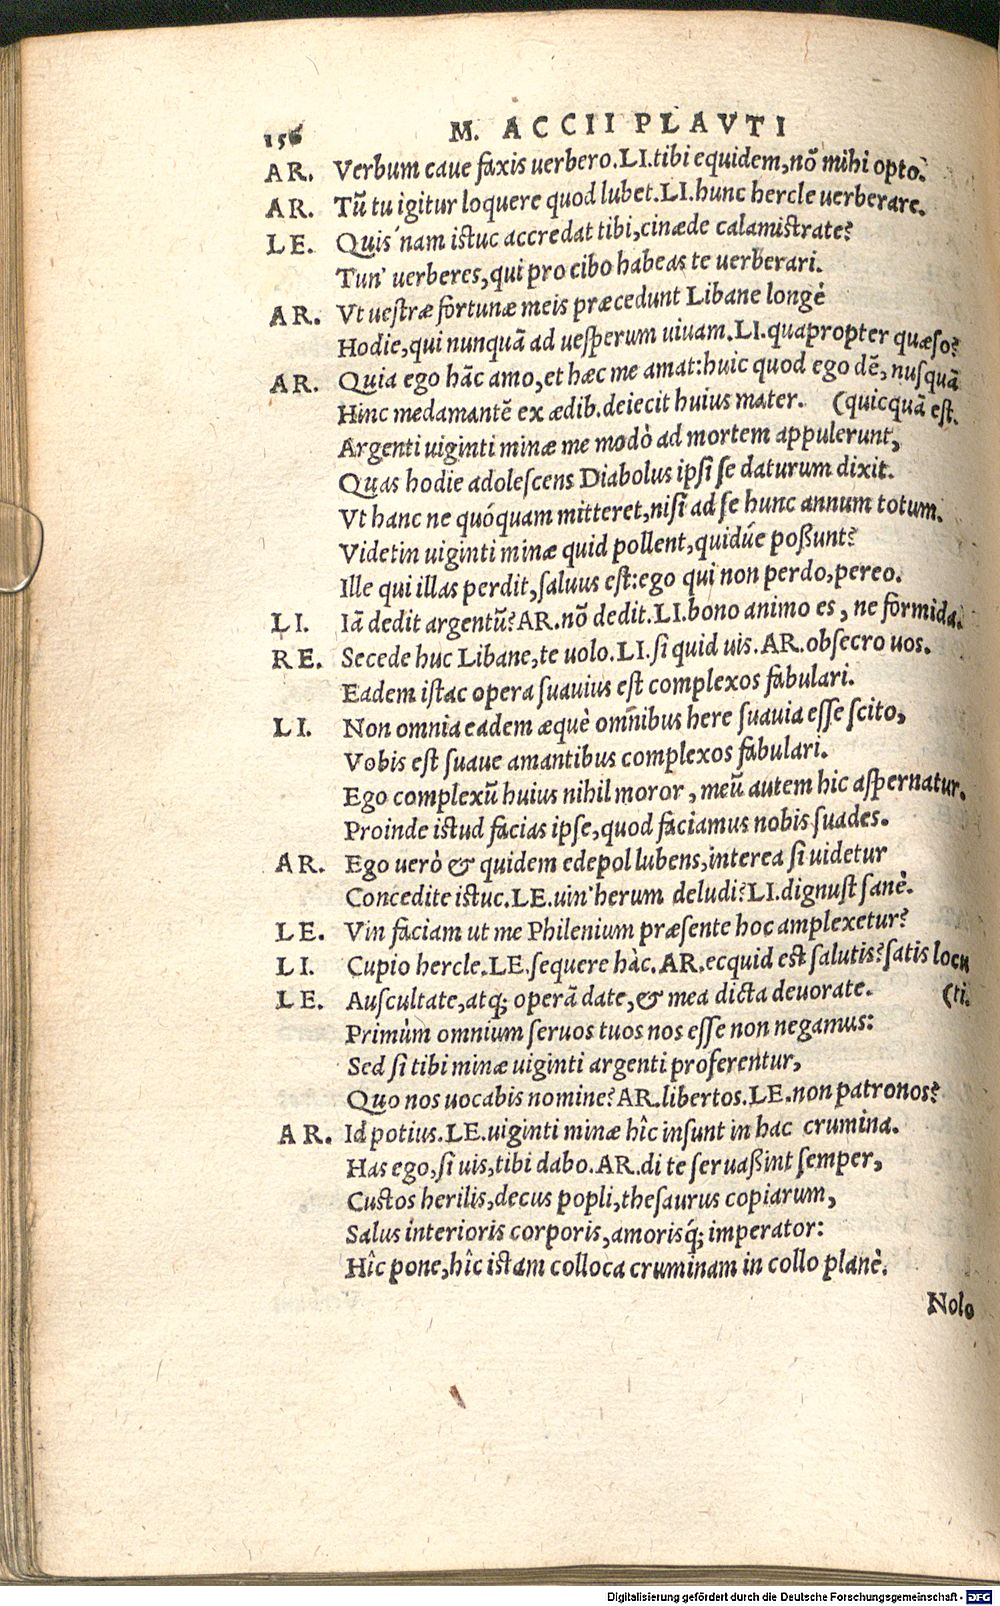 156 M. ACCII PLAVTI
AR. Verbum caue faxis uerbero.LI.tibi equidem,nõ mihi opto.
AR. Tũ tu igitur loquere quod lubet.LI.hunc hercle uerberare.
LE. Quis'nam istuc accredat tibi,cinæde calamistrate?
Tun' uerberes,qui pro cibo habeas te uerberari.
AR. Vt uestræ fortunæ meis præcedunt Libane longè
Hodie,qui nunquã ad uesperum uiuam.LI.quapropter quæso?
AR. Quia ego hãc amo,et hæc me amat:huic quod ego dẽ, nusquã
Hinc medamantẽ ex ædib.deiecit huius mater. (quicquã est.
Argenti uiginti minæ me modò ad mortem appulerunt,
Quas hodie adolescens Diabolus ipsi se daturum dixit.
Vt hanc ne quóquam mitteret,nisi ad se hunc annum totum.
Videtin uiginti minæ quid pollent,quidúe poßunt?
Ille qui illas perdit,saluus est:ego qui non perdo,pereo.
LI. Iã dedit argentũ?AR.nõ dedit.LI.bono animo es, ne formida.
RE. Secede huc Libane,te uolo.LI.si quid uis.AR.obsecro uos.
Eadem istac opera suauius est complexos fabulari.
LI. Non omnia eadem æquè omnibus here suauia esse scito,
Vobis est suaue amantibus complexos fabulari.
Ego complexũ huius nihil moror, meũ autem hic aspernatur.
Proinde istud facias ipse,quod faciamus nobis suades.
AR. Ego uerò & quidem edepol lubens,interea si uidetur
Concedite istuc.LE.uin'herum deludi?LI.dignust sanè.
LE. Vin faciam ut me Philenium præsente hoc amplexetur?
LI. Cupio hercle.LE.sequere hàc.AR.ecquid est salutis?satis locu
LE. Auscultate,atq; operã date,& mea dicta deuorate. (ti.
Primùm omnium seruos tuos nos esse non negamus:
Sed si tibi minæ uiginti argenti proferentur,
Quo nos uocabis nomine?AR.libertos.LE.non patronos?
AR. Id potius.LE.uiginti minæ hîc insunt in hac crumina.
Has ego,si uis,tibi dabo.AR.di te seruaßint semper,
Custos herilis,decus popli,thesaurus copiarum,
Salus interioris corporis,amorisq́; imperator:
Hîc pone,hîc istam colloca cruminam in collo planè.
Nolo
Digitalisierung gefördert durch die Deutsche Forschungsgemeinschaft - DFG